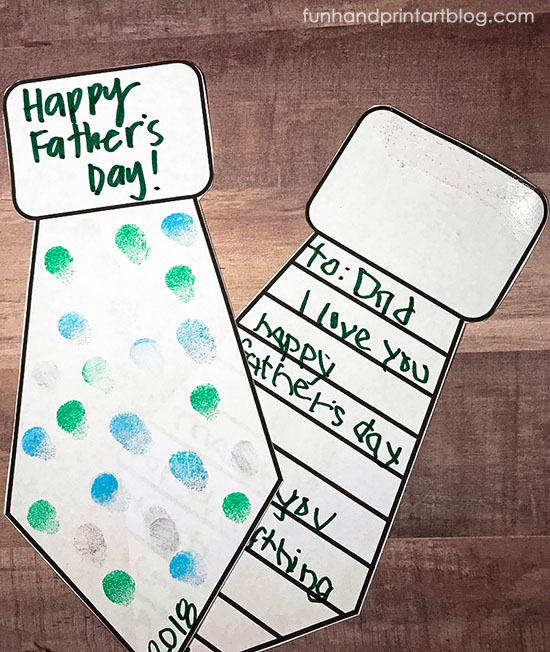 funhandprintartblog.com
Happy
Father's
Day!
2018
to: Dad
I love you
happy
father's day
you